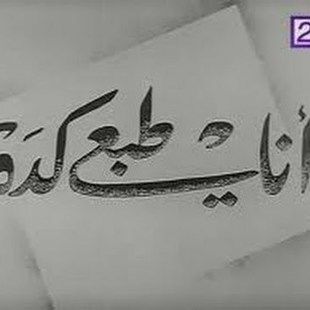 2
أنا طبعي كدَه